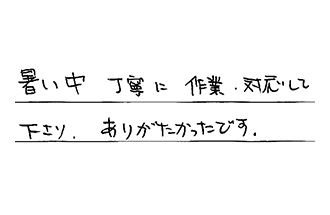 暑い中 丁寧に 作業、対応して
下さり、ありがたかったです。